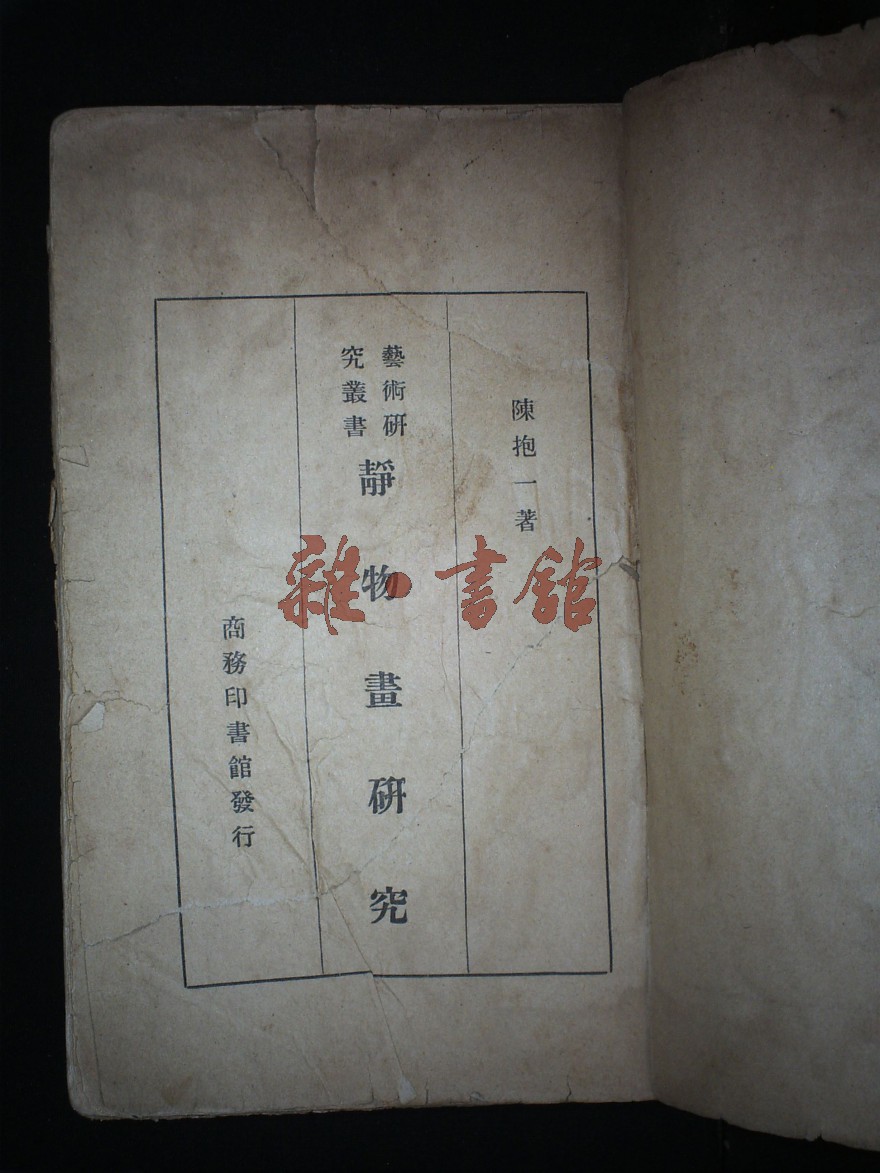 陳抱一著
藝術研
究叢書
靜物畫研究
商務印書館發行
雜書館